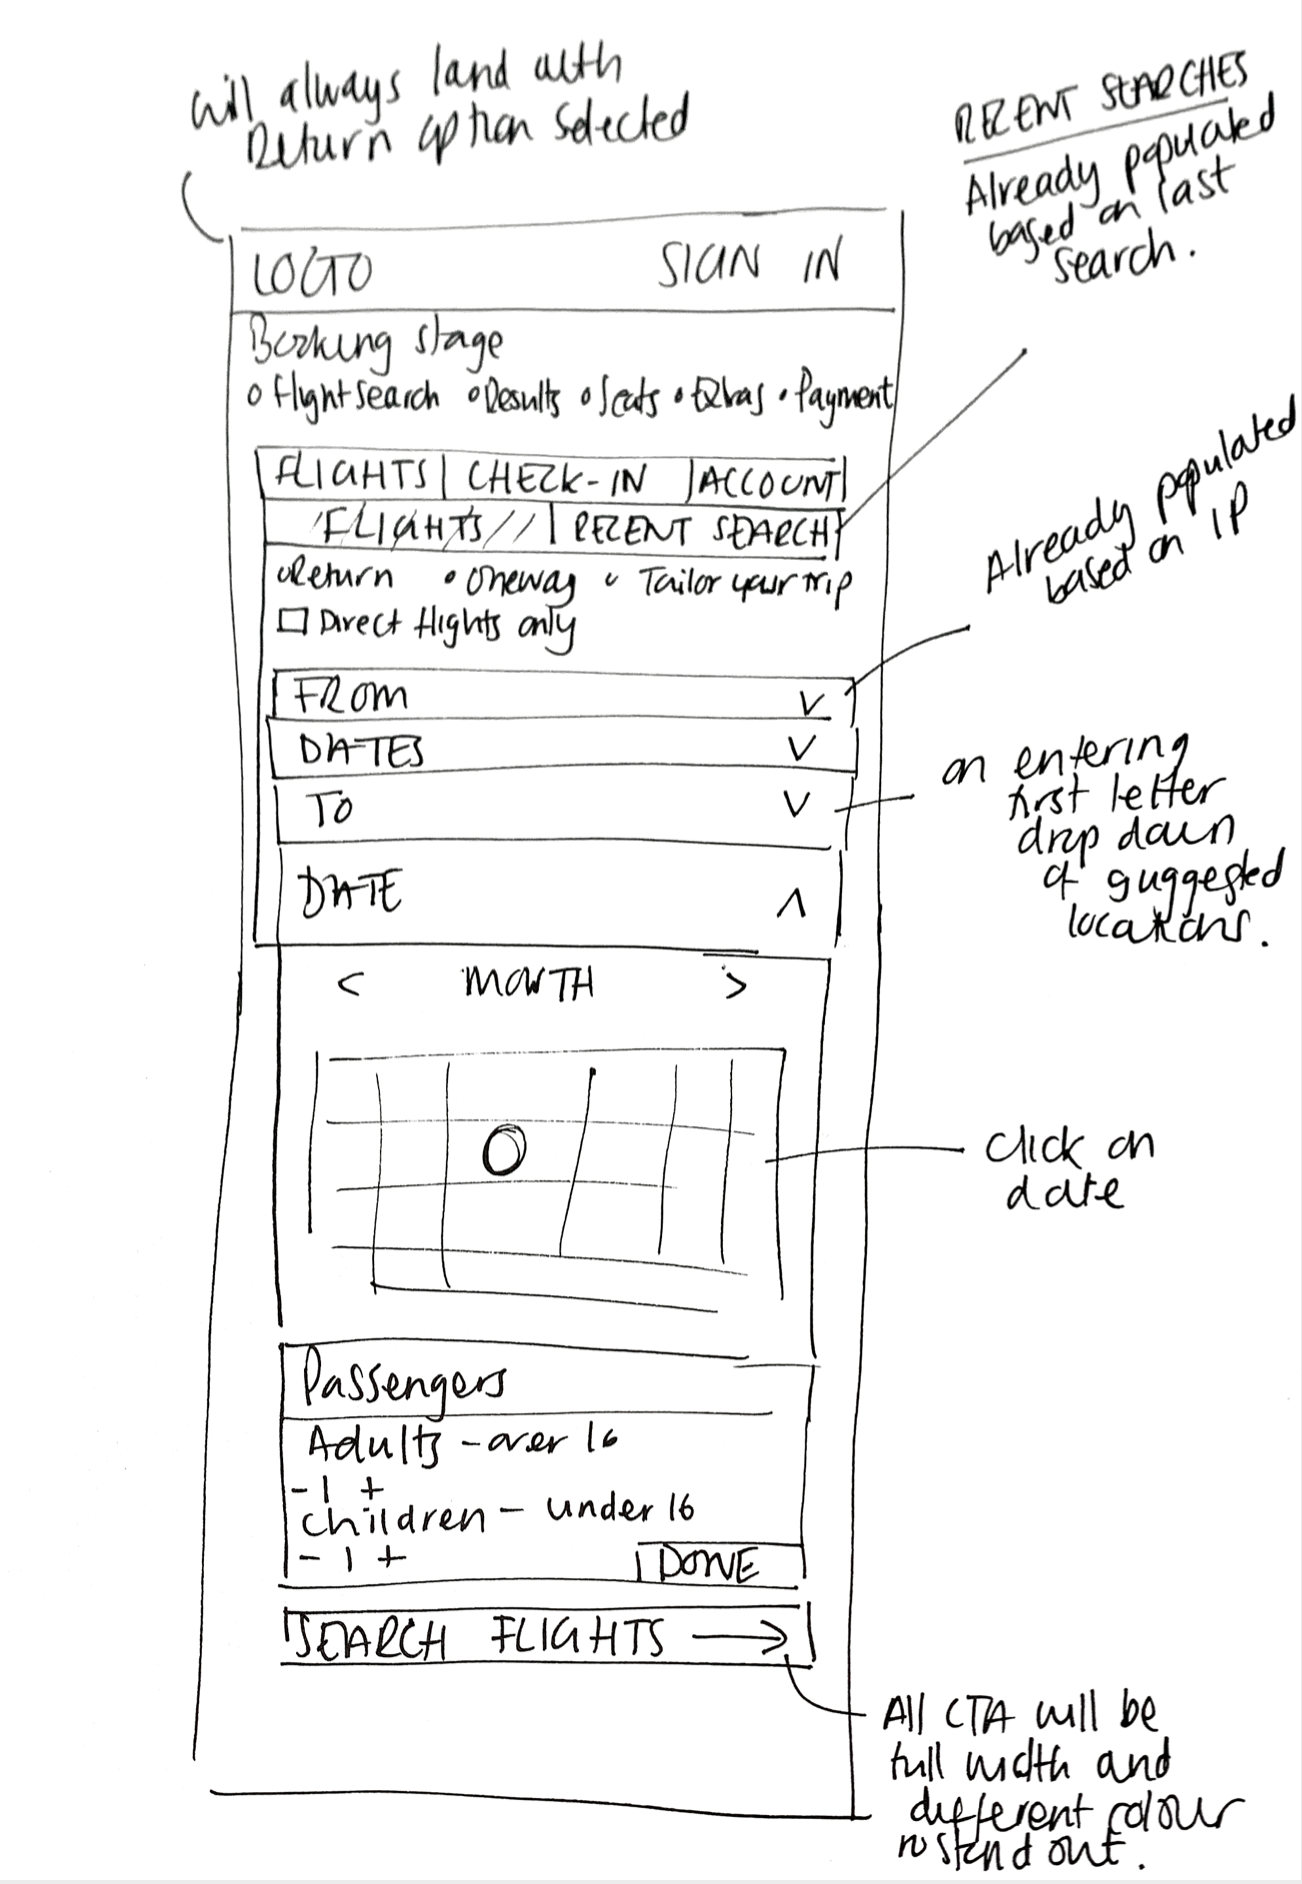 will always land with
Return option selected
RECENT SEARCHES
Already populated
based on last
search.
LOGO SIGN IN
Booking stage
Flight search Results Seats Extras Payment
FLIGHTS CHECK-IN ACCOUNT
FLIGHTS RECENT SEARCH
Return Oneway Tailor your trip
Direct flights only
Already populated
based on IP
FROM V
DATES V
TO V
DATE Λ
on entering
first letter
drop down
of guggested
locations.
< MONTH >
Click on
date
Passengers
Adults - over 16
- 1 +
children - under 16
- 1 +
DONE
SEARCH FLIGHTS →
All CTA will be
full width and
different colour
to stand out.